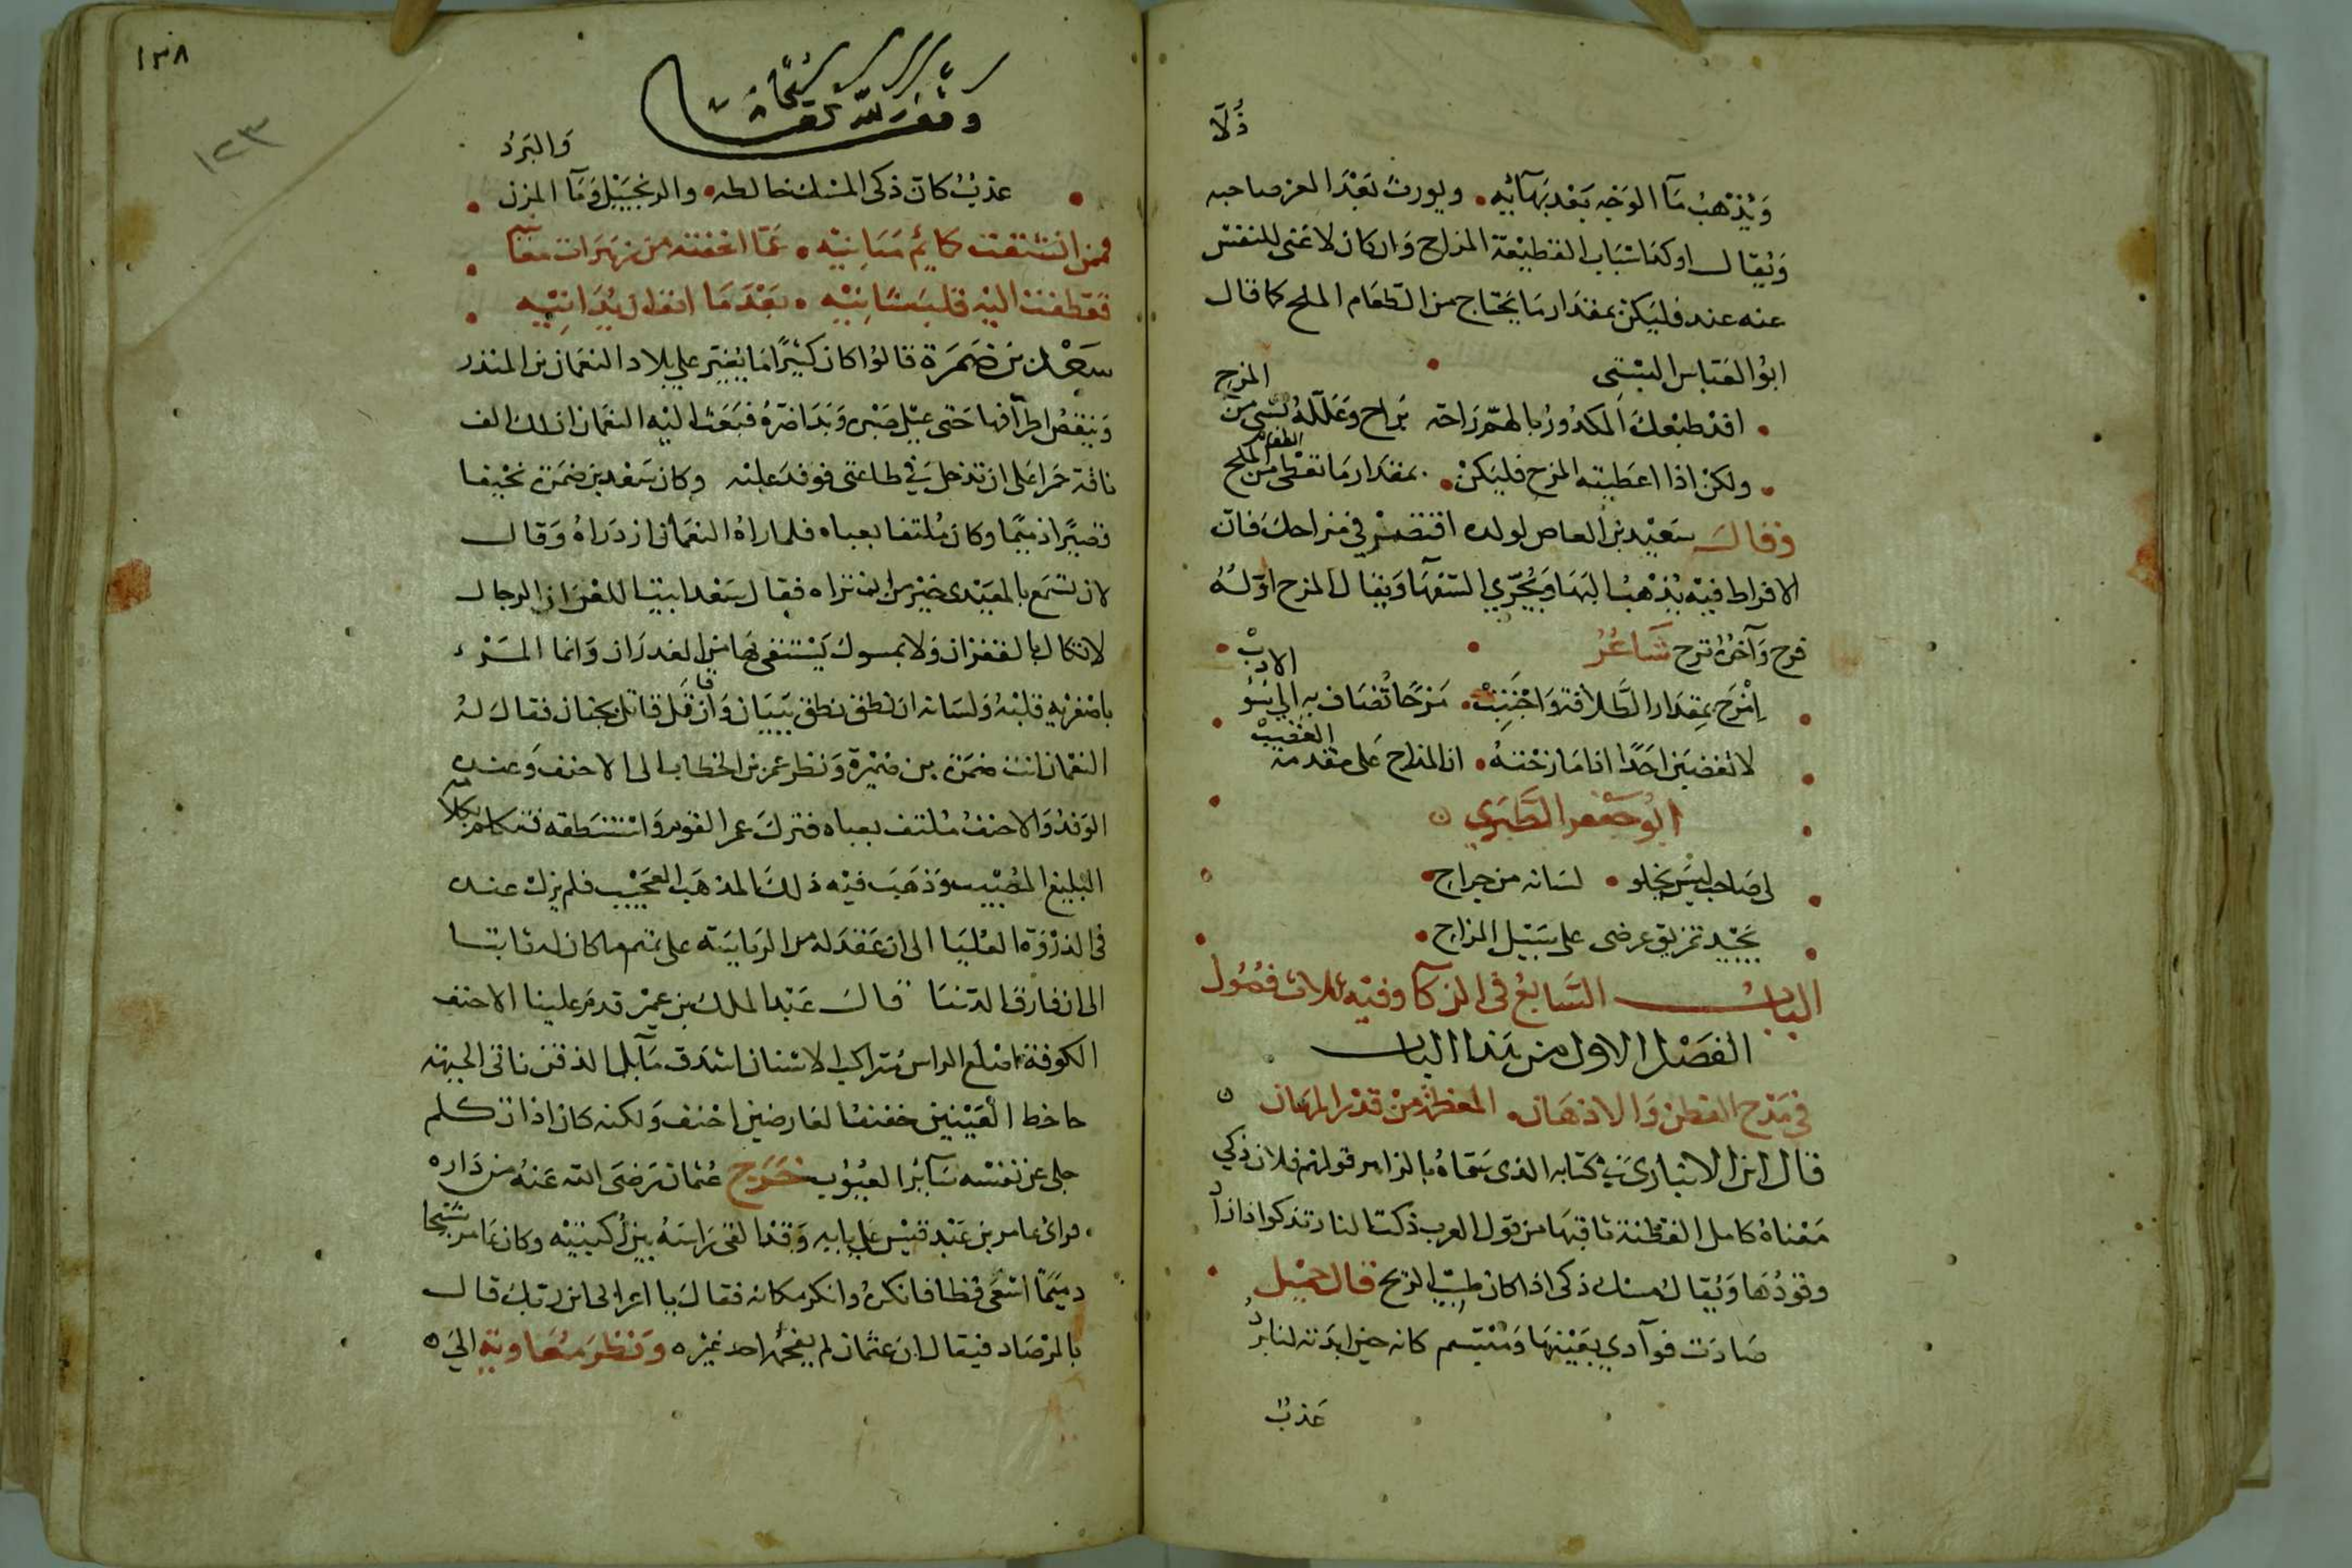 ذُلّا
وَيُذْهبُ مَآ الوَجْه بَعْد بَهَآئِه • ويورث بَعْدَ العز صاحبه
وَيُقال اوكد اسْبَاب القطيْعَة المزاح وَان كان لا غنى للنفس
عنه عند فليَكن بمقدَار مَا يَحْتاج من الطعَام الملح كما قال
ابُو العَبّاس البُسْتي
افد طبْعك المكدُودُ بالهمّ رَاحَة يَراح وعَلّلهُ بشي من المزح
ولكنْ اذا اعطيته المزح فليَكنْ • بمقدَار مَا تعْطى الطعام من الملح
وَقال سَعيْد بن العاص لولده اقتصدْ في مزاحك فان
الافراط فيْه يُذهبُ البَهَا وَيُجَرّي السّفهَا وَيقال المزح اوّلهُ
فرح وَآخرهُ ترح شاعرُ
اِمْزح بمِقدَار الطَّلاقة وَاجْتنِبْ • مَزحًا تُضاف به الى سُوْ الادبْ
لا تغضبَن احَدًا اذا مَا زحْتهُ • ان المزاح عَلى مقدمة الغضبْ
ابُو جَعْفر الطَّبَري
لي صَاحب ليسَ يخلو • لسَانه من جراح
يَجيْد تمزيق عرضى على سَبيْل المزاح
البابُ السَّابعُ في الذكآ وفيْه ثلاث فصُول
الفصْل الاول من هَذا الباب
في مَدْح الفطن وَالاذهَان • المعظمَة منْ قدْر المهَان
قال ابن الانبارى في كتابه الذى سَمّاهُ بالزاهر قولهم فلان ذكي
مَعْناهُ كامل الفطْنة ثاقبهَا من قول العرب ذكت النار تذكوا اذا زادَ
وقودُهَا وَيُقالُ مسْك ذكى اذا كان طيّبُ الريح قال جميْل
صَادَت فوآدي بعَيْنيهَا وَمبْتسم كانه حين ابدَته لنا بردُ
عَذبُ
١٣٨
١٢٣
وقف لله تعالى
عذبُ كان ذكى المسْك خالطه • والزنجبيْل وَمَآ المزن وَالبَرَدُ
فقطفت اليْه فلبسَتَانيْه • بَعْدَمَا
سَعْد بن ضَمرَة قالوُا كان كثيْرًا مَا يُغيْر على بلاد النعمَان بن المنذر
وَينقصُ اطرَآفها حَتى عيْل صَبْره وَبَدَا ضَرّهُ فبَعَث اليْه النعمَان ان لك الف
ناقة حَمرا على ان تدْخل في طاعتى فوفدَ عليْه وكان سَعْد بن ضمرَة نحيْفا
قصيْرًا ذميْمًا وكان مُلتفا بعباه فلما راهُ النعمَان ازدَراهُ وَقال
لان تسْمَع بالمعَيْدى خيْر من ان تراه فقال سَعْد ابيْتَ اللعْن ان الرجال
لا تكال بالقفزان وَلا بمسوك يَسْتقى بهَا من الغدرَان وَانما المَرْء
باصْغرَيه قلبُه وَلسَانه ان نطق نطق ببَيَان وَان قاتل قاتل بجنان فقال له
النعْمان انت ضمرَة بن ضمْرَة وَنظر عمر بن الخطاب الى الاحنف وَعندَه
الوَفدُ وَالاحنفُ مُلتف بعباه فتركَ عمر القوم وَاسْتنطَقه فتكلم بكلامه
البليْغ المصيْب وَذهَبَ فيْه ذلك المذهَب العَجيْب فلم يزل عنده
في الذرْوَة العُليَا الى ان عَقدَ له من الريَاسَة على تميم ما كان له ثابتا
الى ان فارق الدنيَا قال عَبْد الملك بن عميْر قدم علينا الاحنف
الكوفة اصْلع الراس مُتراكب الاسْنان اشدق مَآيل الذقن ناتى الجبهَة
جاحظ العَيْنيْن خفيْف العَارضيْن احْنف وَلكنه كان اذا تكلم
جلى عن نفسْه سَآئر العيُوب خَرَج عُثمان رَضى الله عَنهُ من دَاره
فراى عامر بن عَبْد قيْس على بابه وَقد القى رَاسَهُ بيْن رُكبتيْه وكان عَامر شيْخا
دميْمًا اشغى فظا فانكرهُ وانكر مكانه فقال يا اعرابي اين ربّك قال
بالمرْصَاد فيقال ان عثمان لم يفحمْه احد غيْره وَنظرَ مُعَاوية الى